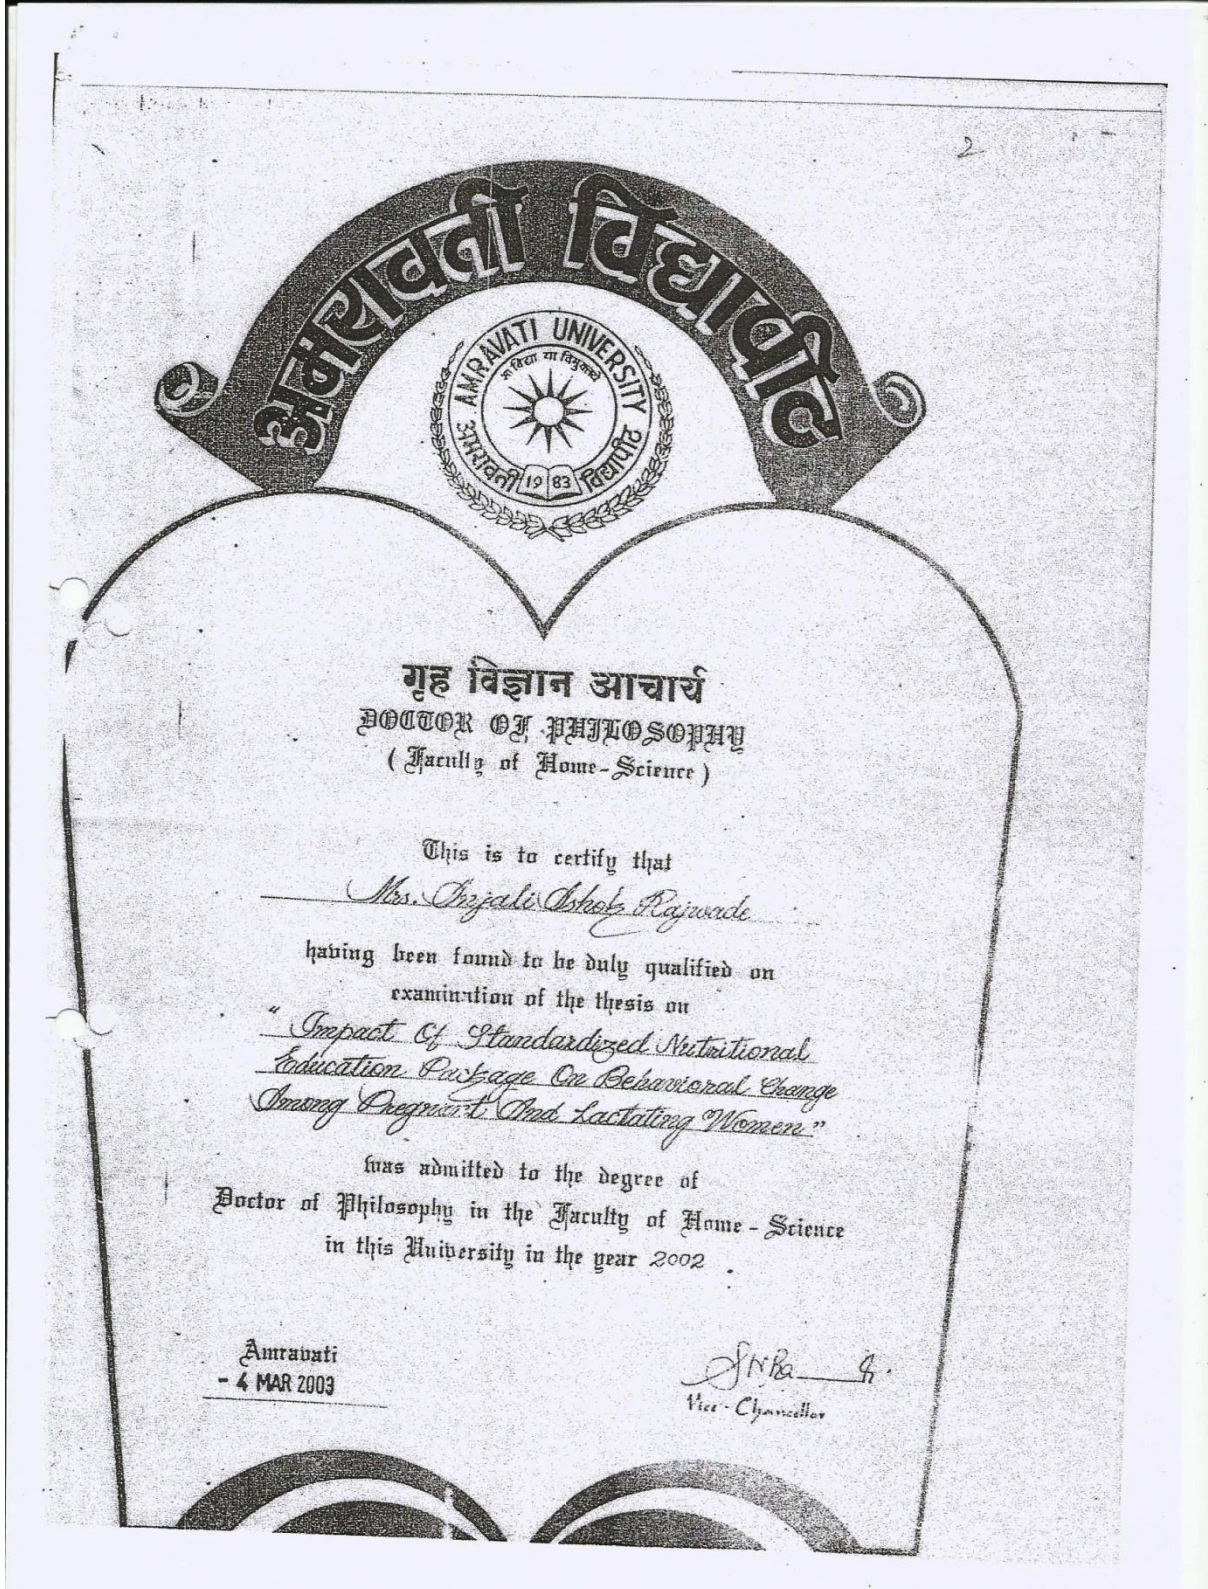 2
अमरावती विद्यापीठ
AMRAVATI UNIVERSITY
सा विद्या या विमुक्तये
अमरावती 1983 विद्यापीठ
गृह विज्ञान आचार्य
DOCTOR OF PHILOSOPHY
( Faculty of Home-Science )
This is to certify that
Mrs. Anjali Ashok Rajwade
having been found to be duly qualified on
examination of the thesis on
"Impact Of Standardized Nutritional
Education Package On Behavioral Change
Among Pregnant And Lactating Women"
was admitted to the degree of
Doctor of Philosophy in the Faculty of Home-Science
in this University in the year 2002
Amravati
- 4 MAR 2003
Vice-Chancellor